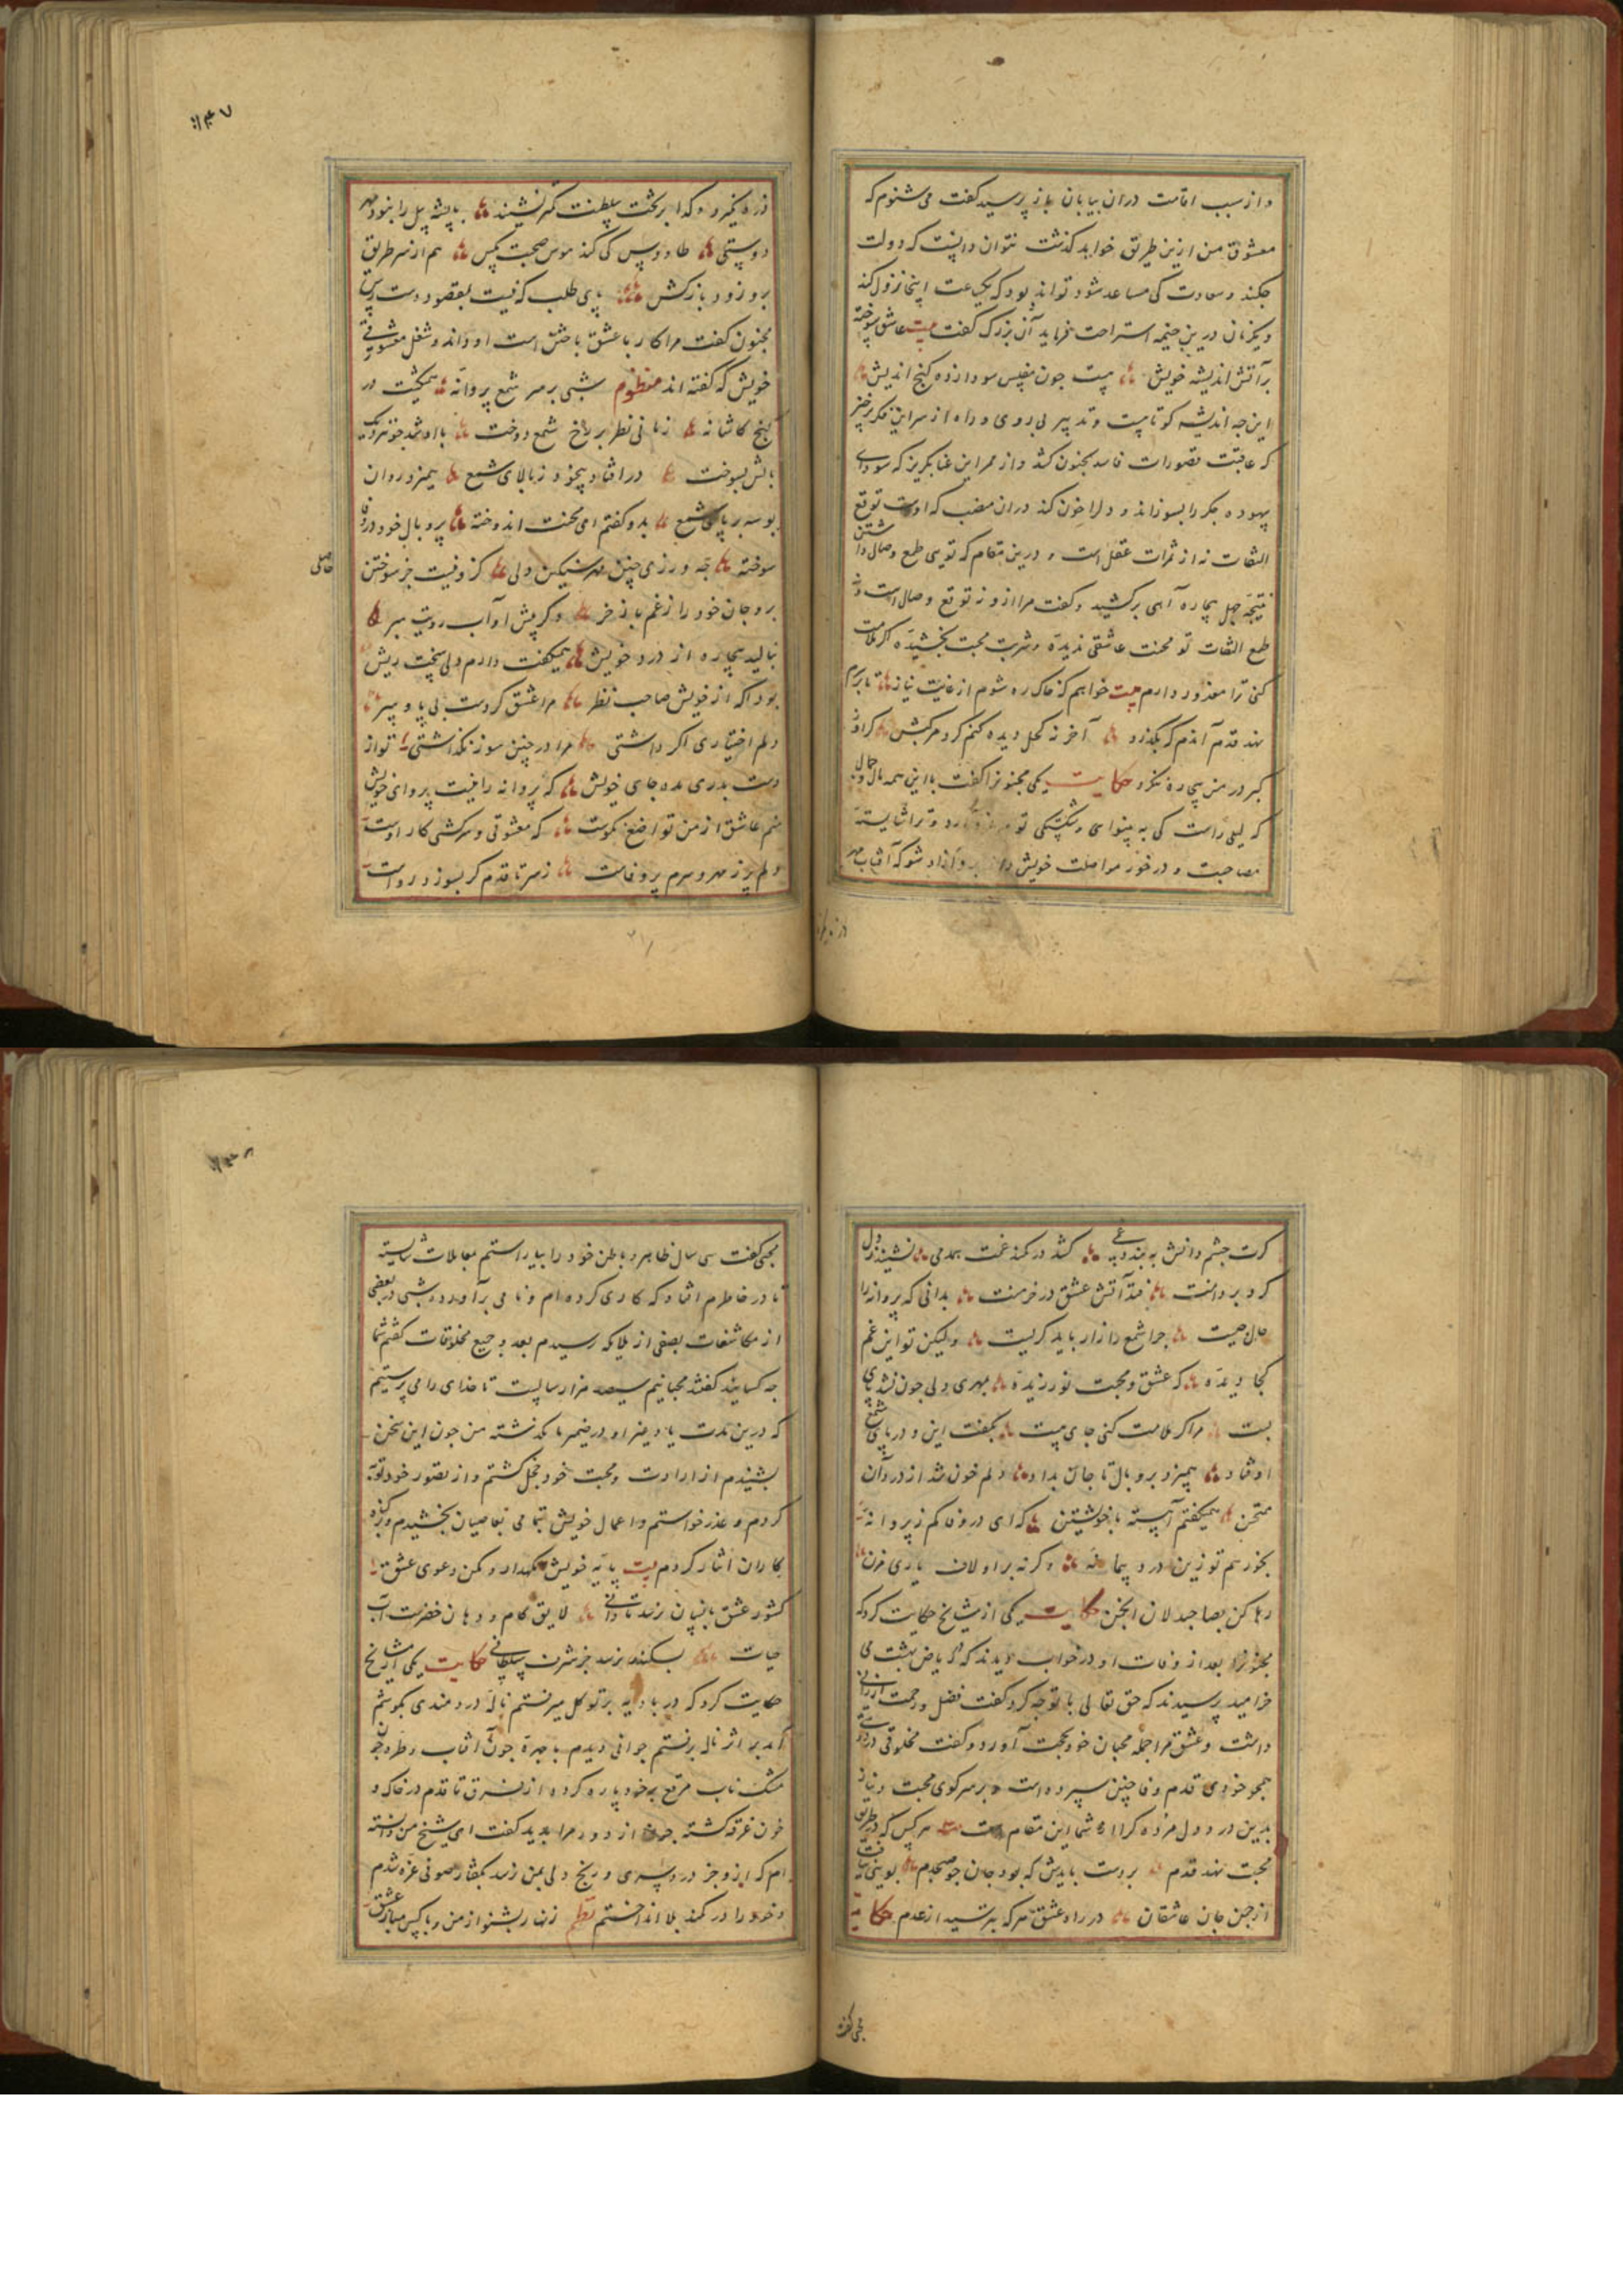 و از سبب اقامت در ان بیابان باز پرسید کفت می شنوم که
معشوق من ازین طریق خواهد کذشت نتوان دانست که دولت
جکند و سعادت کی مساعد شود تواند بود که یکساعت اینجا نزول کند
و یکزمان درین خیمه استراحت فرماید آن بزرک کفت بیت عاشق سوخته
بر آتش اندیشه خویش هست جون مفلس سودازده کنج اندیش
این جه اندیشه کوتاهست و تدبیر بی روی و راه از سر این فکر برخیز
که عاقبت تصورات فاسد بجنون کشد و از ممر این غنا بکریز که سودای
بیهوده جکر را بسوزاند و دلرا خون کند دران منصب که اوست توقع
التفات نه از ثمرات عقل است و درین مقام که تویی طمع وصال داشتن
نتیجه جهل بیچاره آهی برکشید و کفت مرا ازو نه توقع وصال است و نه
طمع التفات تو محنت عاشقی ندیده و شربت محبت نچشیده اکر ملامت
کنی ترا معذور دارم بیت خواهم که خاک ره شوم از غایت نیاز تا بر سرم
نهد قدم آندم که بکذرد آخر نه کحل دیده کنم کرد مرکبش کر از
کبر در من بیچاره ننکرد حکایت یکی مجنونرا کفت با این همه مال و جمال
که لیلی راست کی به بینوایی و شکستکی تو سر فرود آرد و ترا شایسته
مصاحبت و در خور مواصلت خویش داند برو آزاد شو که آفتاب مهر
ذره نکیرد و کدا بر تخت سلطنت کمتر نشیند با پشه پیل را نبود مهر
دوستی طاووس کی کند هوس صحبت مکس هم از سر طریق
برو زود باز کش پای طلب که نیست بمقصود دست رس
مجنون کفت مرا کار با عشق باختن است او داند و شغل معشوقی
خویش که کفته اند منظوم شبی بر سر شمع پروانه همیکشت در
کنج کاشانه زمانی نظر بر رخ شمع دوخت
بالش بسوخت در افتاد بیخود ز بالای شمع همیزد روان
بوسه بر پای شمع بدو کفتم ای محنت اندوخته پر و بال خود در وفا
سوخته جه ورزی چنین مهر سنکین دلی کزو نیست جز سوختن
حاصلی
برو جان خود را ز غم باز خر و کر پیش او آب رویت مبر
بنالید بیچاره از درد خویش همیکفت دارم دلی سخت ریش
بود آکه از خویش صاحب نظر مرا عشق کردست بی پا و سر
دلم اختیاری اکر داشتی مرا در چنین سوز نکذاشتی تو از
دست بدری مده جای خویش که پروانه را نیست پروای خویش
منم عاشق از من تواضع نکوست که معشوقی و سرکشی کار اوست
دلم پر ز مهر و سرم پر وفاست ز سر تا قدم کر بسوزد رواست
کرت جشم دانش به بندد کشد در کمند غمت همدمی نشیند
کرد بر دامنت فتد آتش عشق در خرمنت بدانی که پروانه را
حال جیست جرا شمع را زار باید کریست ولیکن تو این غم
کجا دیده که عشق و محبت نورزیده بمهری دلی جون نشد پای
بست مرا کر ملامت کنی جای هست بکفت این و در پای شمع
اوفتاد همیزد پر و بال تا جان بداد دلم خون شد از درد آن
ممتحن همیکفتم آهسته با خویشتن که ای در وفا کم ز پروانه
بخور هم تو زین درد پیمانه و کر نه برو لاف یاری مزن
رها کن بصاحبدلان انجمن حکایت یکی از مشایخ حکایت کرد که
مجنونرا بعد از وفات او در خواب دیدند که در ریاض بهشت می
خرامید پرسیدند که حق تعالی با تو جه کرد کفت فضل و رحمت ارزانی
داشت و عشق مرا جمله محبان خود بحجت آورد و کفت مخلوقی در
همجو خودی قدم وفا چنین سپرده است و بر سر کوی محبت و نیاز
بدین درد دل مرده کرا از شما این مقام هست بیت هر کس که در طریق
محبت نهد قدم بر دست بایدش که بود جان جو صبحدم بویی نیافت
از جمن جان عاشقان در راه عشق هر که نترسید از عدم حکایت
محبی کفت
محبی کفت سی سال ظاهر و باطن خود را بیاراستم بمعاملات شایسته
تا در خاطرم افتاد که کاری کرده ام و نامی برآورده شبی در بعضی
از مکاشفات بصفی از ملایکه رسیدم بعدد جمیع مخلوقات کفتم شما
جه کسانید کفتند محبانیم سیصد هزار سالست تا خدای را می پرستیم
که درین مدت یاد غیر او در ضمیر ما نکذشته من جون این سخن
بشنیدم از ارادت و محبت خود خجل کشتم و از تصور خود توبه
کردم و عذر خواستم و اعمال خویش تمامی بعاصیان بخشیدم و بزه
کاران ایثار کردم بیت پایه خویش نکهدار و مکن دعوی عشق
کشور عشق بانسان رسد تا دانی لایق کام و دهان خضرست آب
حیات بسکندر نرسد جز شرف سلطانی حکایت یکی از مشایخ
حکایت کرد که در بادیه بر توکل میرفتم ناله دردمندی بکوشم
آمد بر اثر ناله برفتم جوانی دیدم با جهره جون آفتاب و طره چون
مشک ناب مرقع بر خود پاره کرده از فرق تا قدم در خاک و
خون غرقه کشته جون از دور مرا بدید کفت ای شیخ من دانسته
ام که ازو جز درد سری و رنج دلی بمن نرسد بکفتار صوفی غره شدم
و خود را در کمند بلا انداختم نظم زنهار بشنو از من و با کس مباز عشق